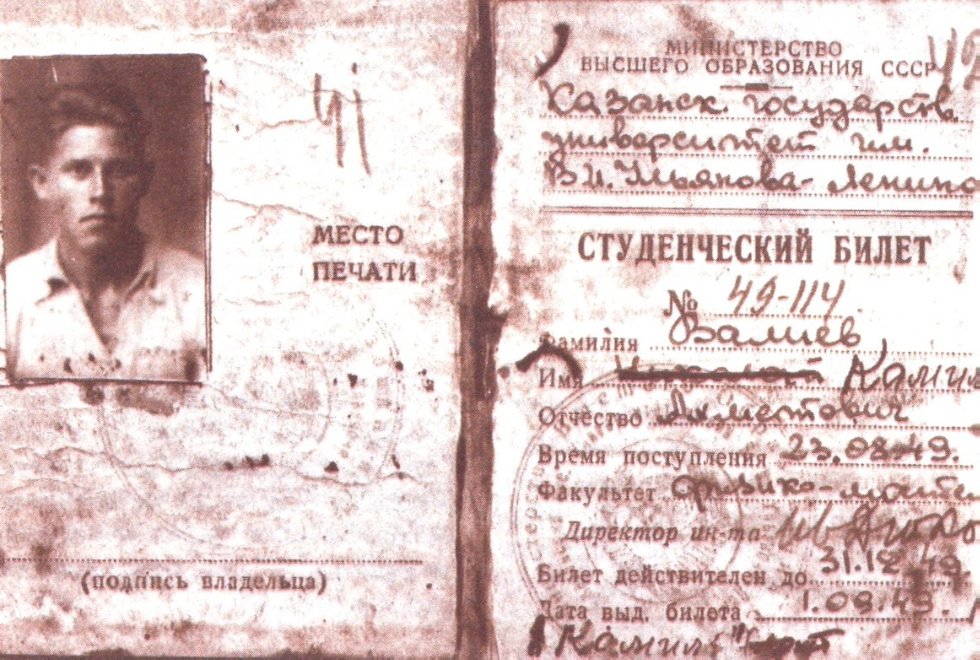 МЕСТО
ПЕЧАТИ
(подпись владельца)
МИНИСТЕРСТВО
ВЫСШЕГО ОБРАЗОВАНИЯ СССР
Казанск. государств.
университет им.
В.И. Ульянова-Ленина
СТУДЕНЧЕСКИЙ БИЛЕТ
№ 49-114
Фамилия Валиев
Имя Камил
Отчество Ахметович
Время поступления 23.08.49.
Факультет физико-мате
Директор ин-та
Билет действителен до 31.12.49.
Дата выд. билета 1.09.49.
Камиль